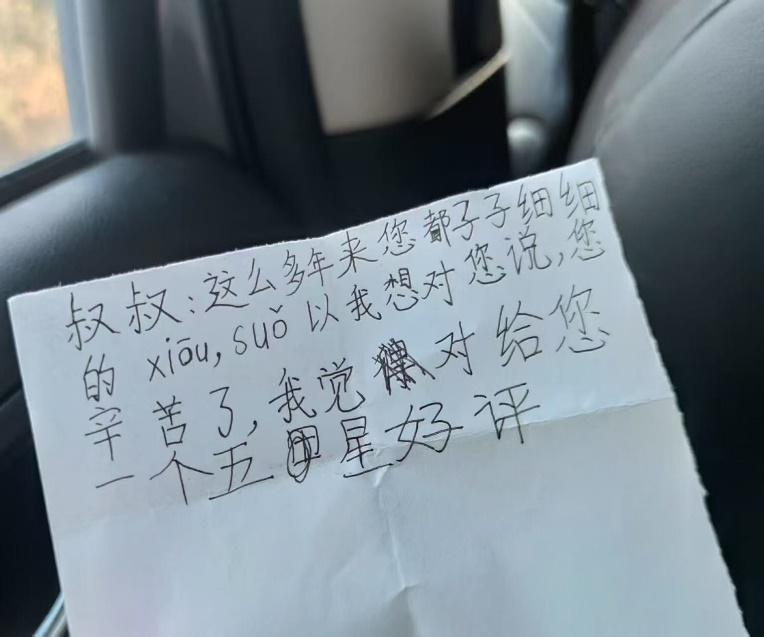 叔叔:这么多年来您都子子细细
的xiōu,suǒ以我想对您说,您
辛苦了,我觉对给您
一个五星好评